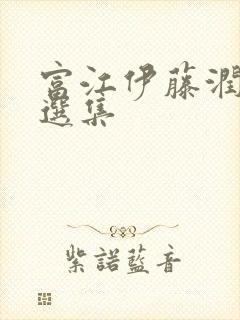 富江伊藤潤
選集
紫諾藍音